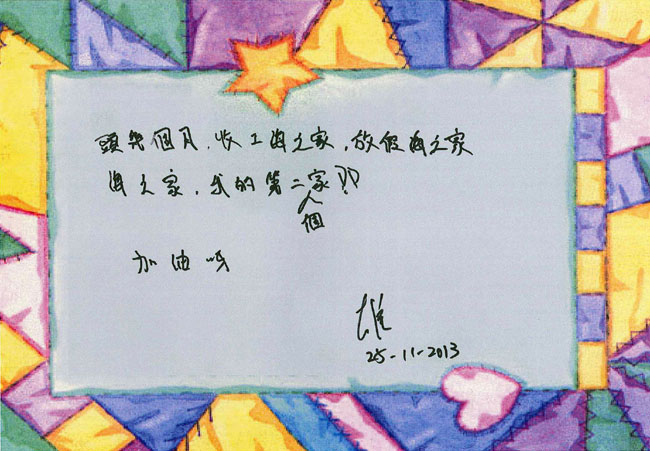 頭幾個月，收工海之家，放假海之家
海之家，我的第二個家!?
加油呀
雄
25-11-2013